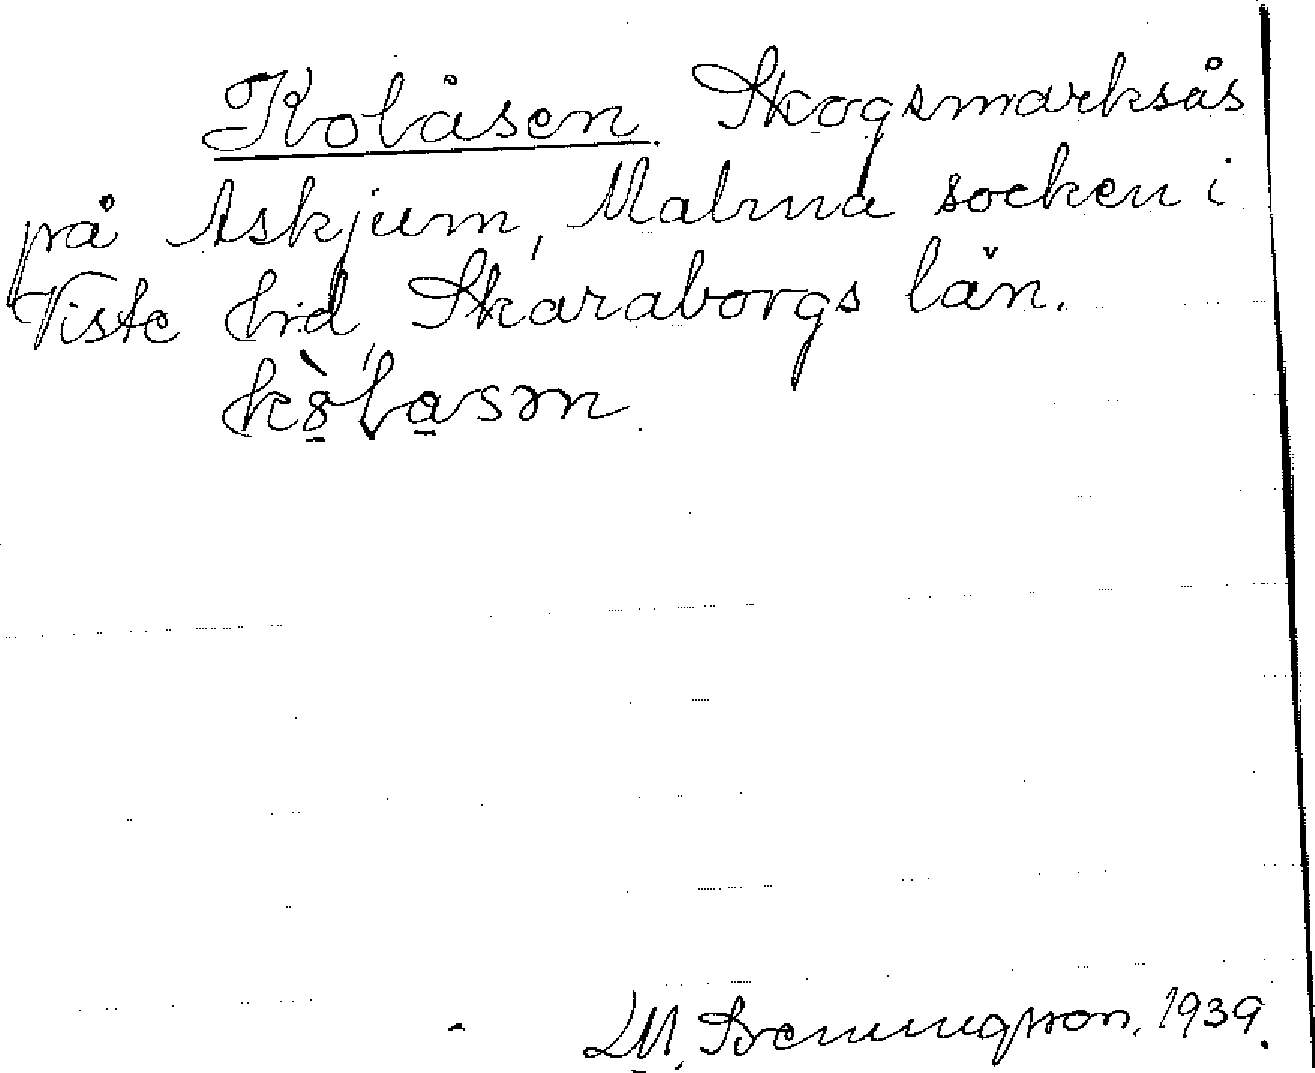 Kolåsen. Skogsmarksås
på Askjum, Malma socken i
Viste hrd, Skaraborgs län.
LM. Svenungsson. 1939.